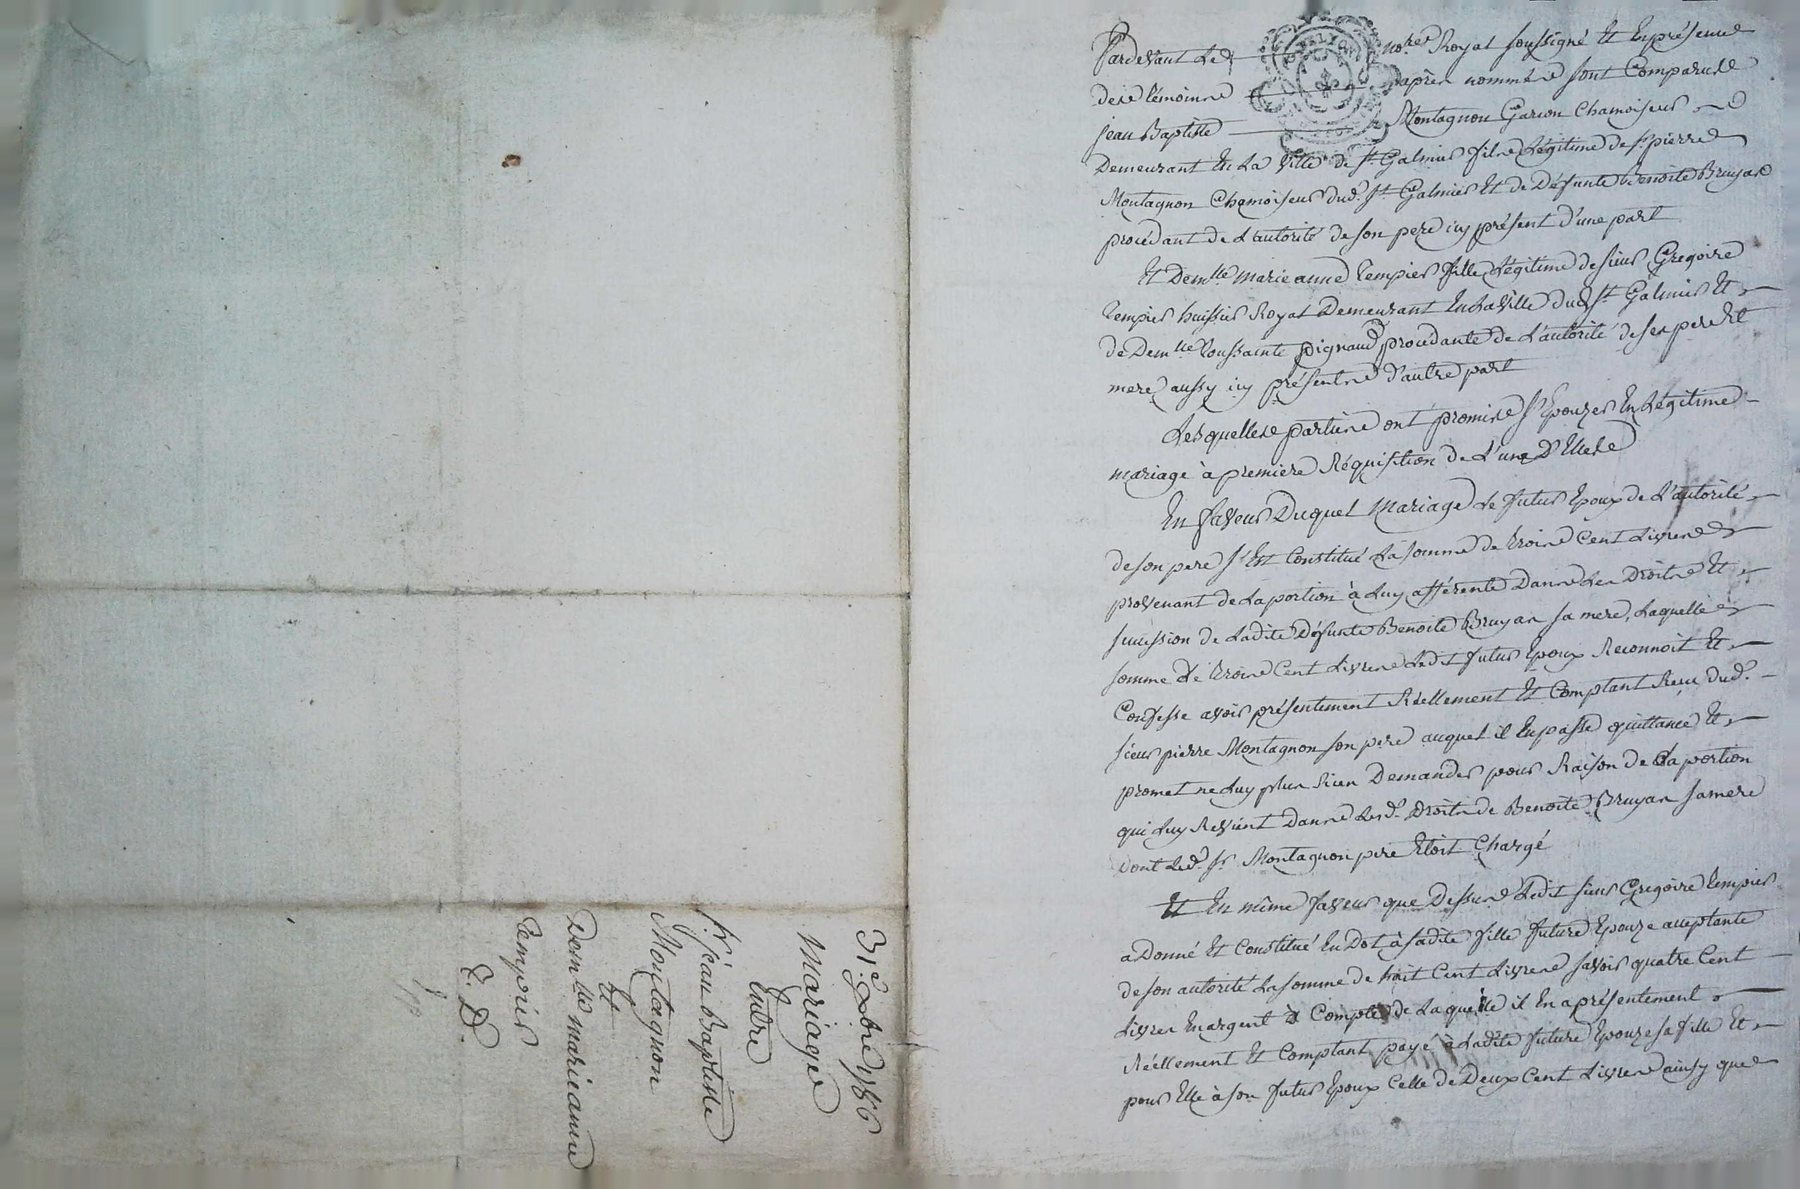 31e. xbre 1786
Mariage
Entre
Sr. jean Baptiste
Montagnon
Et
Dem.lle marie anne
Tempier
E. D.
Pardevant Le no.re Royal soussigné Et En présence
dese témoinse après nommése sont Comparuse
jean Baptiste Montagnon Garson Chamoiseur
Demeurant En La Ville de St. Galmier filse Légitime de Sr. pierre
Montagnon Chamoiseur dud. St. Galmier Et de Défunte Benoite Bruyas
procédant de L'autorité de son pere icy présent d'une part
Et Dem.lle marie anne Tempier fille Légitime de sieur Gregoire
Tempier huissier Royal Demeurant En La Ville dud St. Galmier Et
de Dem.lle Toussainte pignaud procédante de L'autorité de ses pere Et
mere aussy icy présentse d'autre part
Lesquellese partiese ont promise s'Epouzer En Légitime
mariage à premiere Réquisition de L'une D'Ellese
En faveur Duquel Mariage Le futur Epoux de L'autorité
de son pere s'Est Constitué La somme de troise Cent Livrese
provenant de La portion à Luy afférente Danse Les Droitse Et
succession de Ladite Défunte Benoite Bruyas sa mere, Laquelle
somme de troise Cent Livrese Ledit futur Epoux Reconnoit Et
Confesse avoir présentement Réellement Et Comptant Reçu dud.
sieur pierre Montagnon son pere auquel il En passe quittance Et
promet ne Luy plus Rien Demander pour Raison de La portion
qui Luy Revient Danse Lesd. Droitse de Benoite Bruyas sa mere
dont Led. Sr. Montagnon pere Etoit Chargé
Et En même faveur que Dessuse Ledit sieur Gregoire Tempier
a Donné Et Constitué En Dot à sadite fille future Epouze acceptante
de son autorité La somme de huit Cent Livrese savoir quatre Cent
Livres En argent à Compte de Laquelle il En a présentement
Réellement Et Comptant payé à Ladite future Epouze sa fille Et
pour Elle à son futur Epoux Celle de Deux Cent Livrese ainsy que